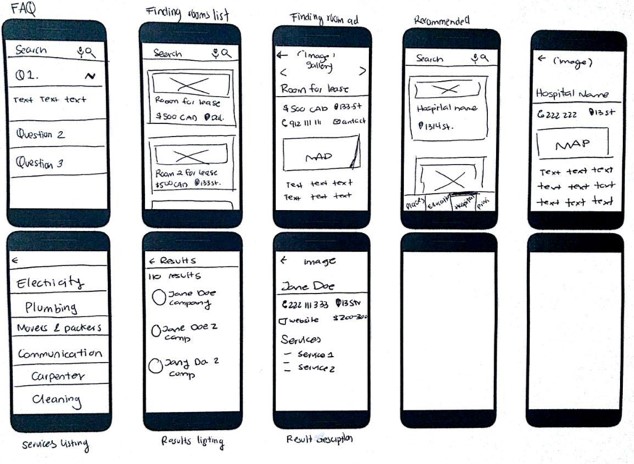 FAQ
Search
Q1.
Text Text text
Question 2
Question 3
Finding rooms list
Search
Room for lease
$500 CAD
Room 2 for lease
$500 CAD 133st.
Finding room ad
← (image)
gallery
< >
Room for lease
$500 CAD 133.st
912 111 111
MAP
Text text text
Text text text
Recommended
Search
Hospital name
1314st.
Hospital
← (image)
Hospital Name
222 222 113st
MAP
Text text text
text text text
text text text
←
Electricity
Plumbing
Movers & packers
Communication
Carpenter
Cleaning
Services listing
← Results
110 results
Jane Doe
company
Jane Doe 2
comp
comp
Results listing
← image
Jane Doe
222 111 333 113str
website $200-300
Services
- service 1
- service 2
Result description